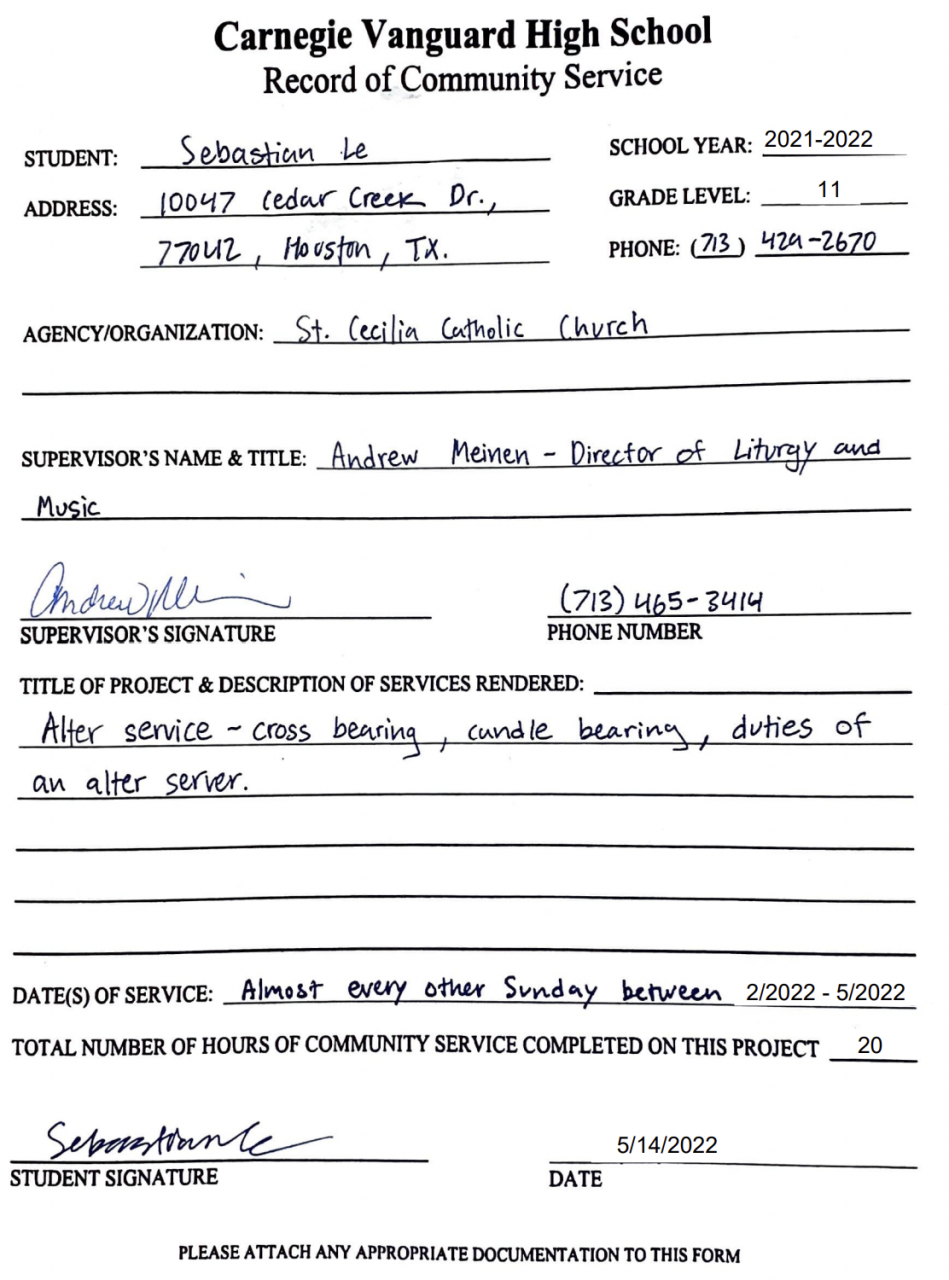 Carnegie Vanguard High School
Record of Community Service
STUDENT: Sebastian Le
SCHOOL YEAR: 2021-2022
ADDRESS: 10047 Cedar Creek Dr.,
GRADE LEVEL: 11
77042, Houston, TX.
PHONE: (713) 429-2670
AGENCY/ORGANIZATION: St. Cecilia Catholic Church
SUPERVISOR'S NAME & TITLE: Andrew Meinen - Director of Liturgy and
Music
(713) 465-3414
SUPERVISOR'S SIGNATURE
PHONE NUMBER
TITLE OF PROJECT & DESCRIPTION OF SERVICES RENDERED:
Alter service - cross bearing, candle bearing, duties of
an alter server.
DATE(S) OF SERVICE: Almost every other Sunday between 2/2022 - 5/2022
TOTAL NUMBER OF HOURS OF COMMUNITY SERVICE COMPLETED ON THIS PROJECT 20
Sebastian Le
5/14/2022
STUDENT SIGNATURE
DATE
PLEASE ATTACH ANY APPROPRIATE DOCUMENTATION TO THIS FORM